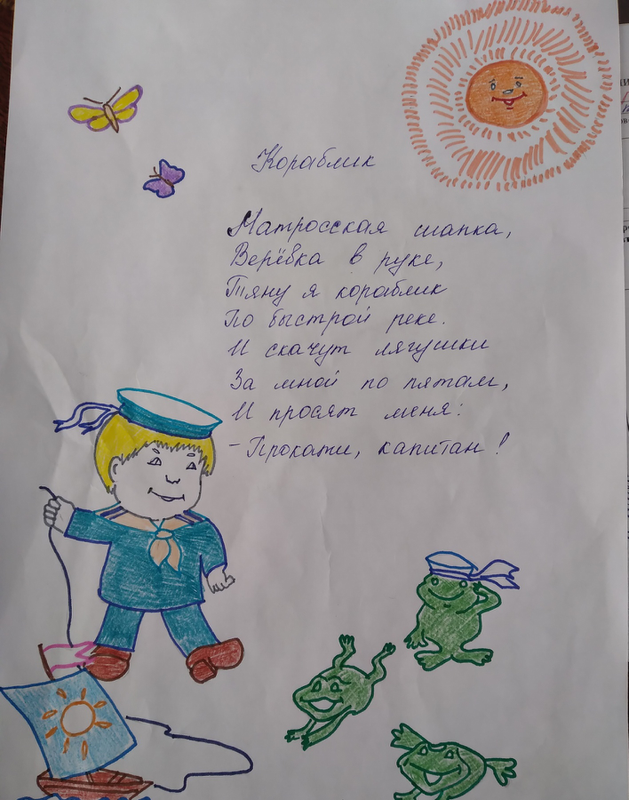 Кораблик
Матросская шапка,
Верёвка в руке,
Тяну я кораблик
По быстрой реке.
И скачут лягушки
За мной по пятам,
И просят меня:
- Прокати, капитан!